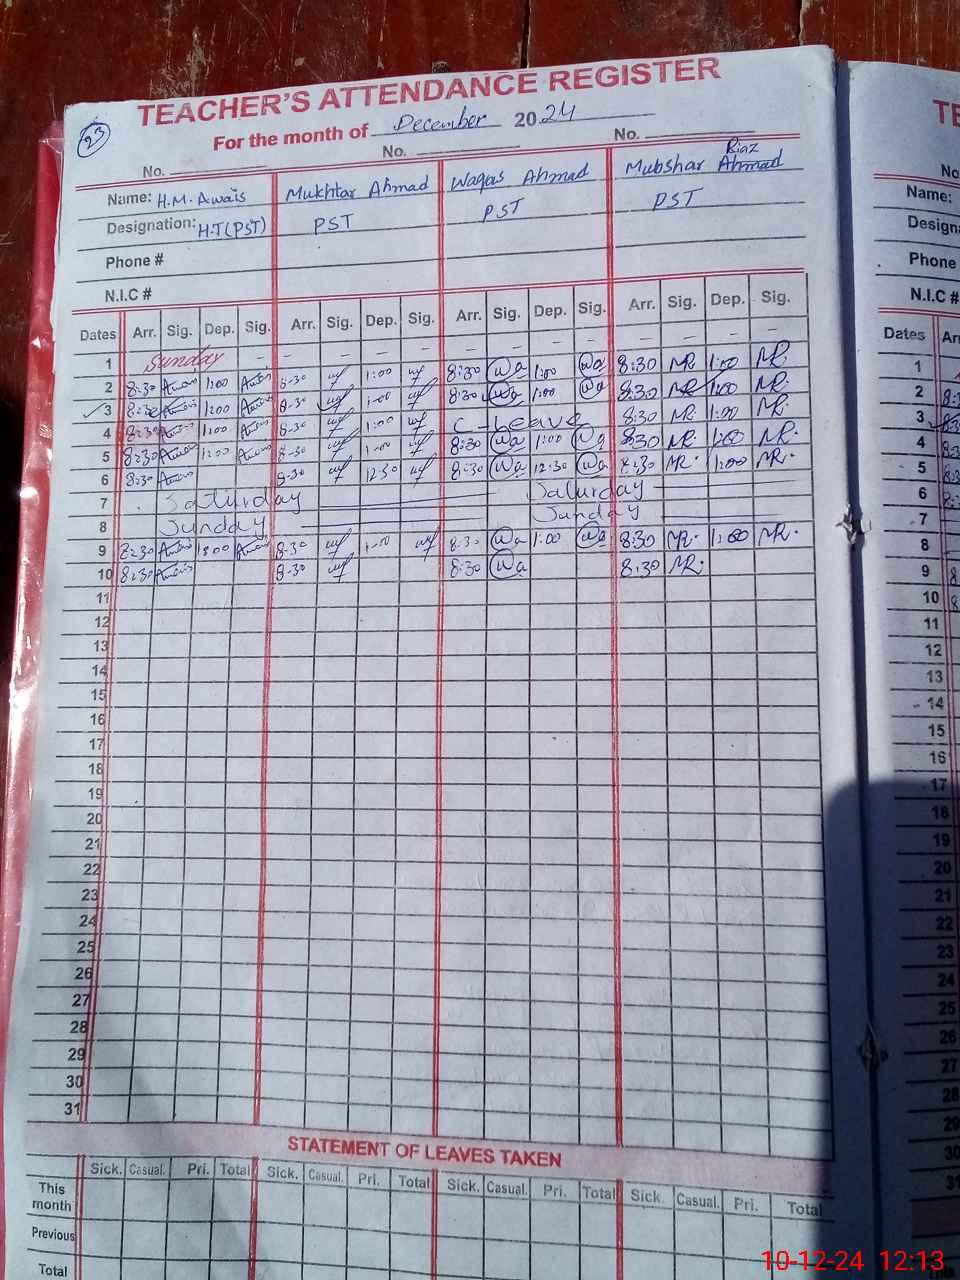 23
TEACHER'S ATTENDANCE REGISTER
For the month of December 2024
No. No. No.
Name: H.M. Awais Mukhtar Ahmad Waqas Ahmad Mubshar Riaz Ahmad
Designation: H.T(PST) PST PST PST
Phone #
N.I.C #
Dates Arr. Sig. Dep. Sig. Arr. Sig. Dep. Sig. Arr. Sig. Dep. Sig. Arr. Sig. Dep. Sig.
1 Sunday - - - - - - - - - -
2 8:30 Awais 1:00 Awais 8-30 1:00 8:30 Wa 1:00 Wa 8:30 MR 1:00 MR
3 8:30 Awais 1:00 Awais 8-30 1:00 8:30 Wa 1:00 Wa 8:30 MR 1:00 MR.
4 8:30 Awais 1:00 Awais 8-30 1:00 C-Leave 8:30 MR. 1:00 MR.
5 8:30 Awais 1:00 Awais 8-30 1-00 8:30 Wa 1:00 Wa 8:30 MR. 1:00 MR.
6 8:30 Awais 8-30 12:30 8:30 Wa 12:30 Wa 8:30 MR. 1:00 MR.
7 Saturday Saturday
8 Sunday Sunday
9 8:30 Awais 1:00 Awais 8-30 1-00 8:30 Wa 1:00 Wa 8:30 MR. 1:00 MR.
10 8:30 Awais 8-30 8:30 Wa 8:30 MR.
11
12
13
14
15
16
17
18
19
20
21
22
23
24
25
26
27
28
29
30
31
STATEMENT OF LEAVES TAKEN
Sick. Casual. Pri. Total Sick. Casual. Pri. Total Sick. Casual. Pri. Total Sick. Casual. Pri. Total
This
month
Previous
Total
TE
No.
Name:
Design
Phone
N.I.C #
Dates Ar
1
2
3
4
5
6
7
8
9
10
11
12
13
14
15
16
17
18
19
20
21
22
23
24
25
26
27
28
29
30
31
10-12-24 12:13